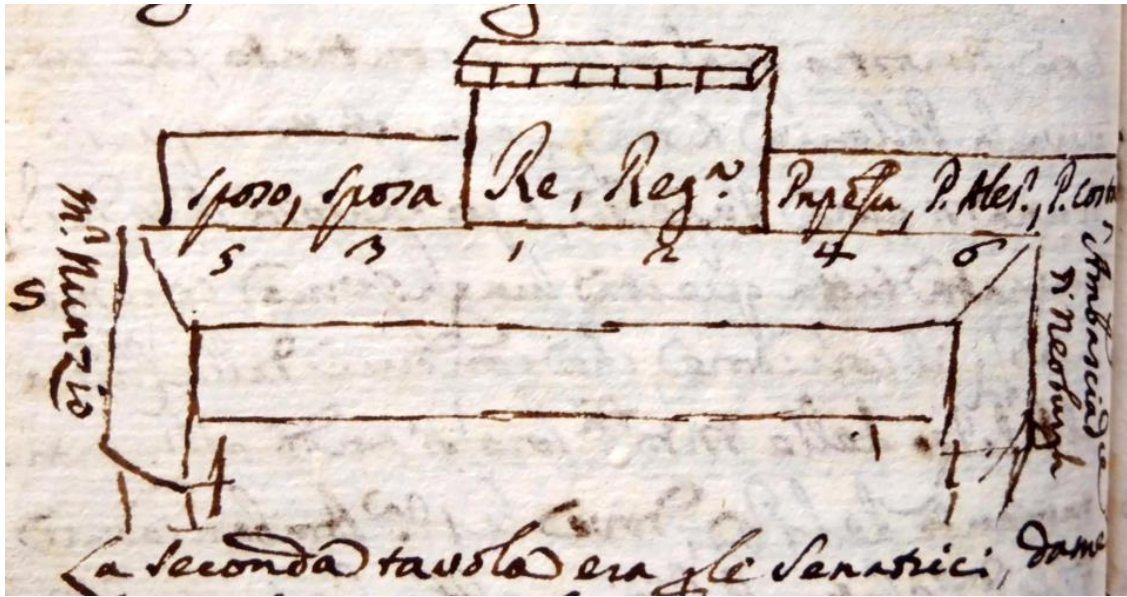 Sposo, Sposa Re, Reg.ª P. Ales.º, P. Cost
5 3 1 2 4 6
S
M.r Nunzio
Ambasciad.e
di Neoburgh
La seconda tavola era p le Senatrici, dame